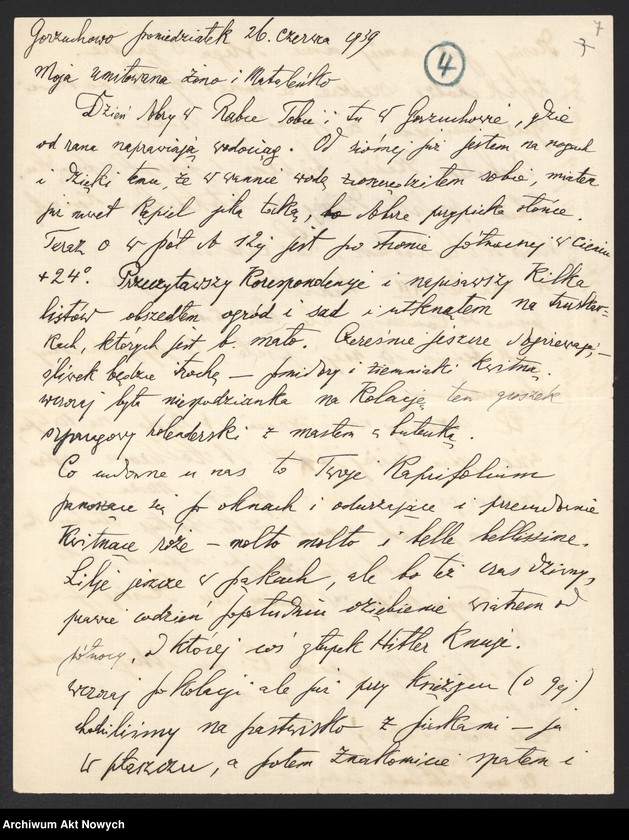 7
7
4
Gorzuchowo poniedziałek 26. czerwca 1939
Moja umiłowana żono i Mateńko
Dzień dobry w Rabce Tobie i tu w Gorzuchowie, gdzie
od rana naprawiają wodociąg. Od siódmej już jestem na nogach
i dzięki temu, że w wannie wodę sobie, miałem
już nawet kąpiel jaką taką, bo dobrze przypieka słońce.
Teraz o w pół do 12ej jest po stronie północnej w cieniu
+24°. Przeczytawszy Korespondencję i napisawszy Kilka
listów obszedłem ogród i sad i utknąłem na truskaw=
kach, których jest b. mało. Czereśnie jeszcze dogrzewają,–
śliwek będzie trochę – pomidory i ziemniaki Kwitną.
wczoraj była niespodzianka na Kolację ten groszek
szparagowy holenderski z masłem a bułeczką.
Co cudowne u nas to Twoje Kaprifolium
panoszące się po oknach i odurzające i przecudownie
Kwitnące róże – molto molto i belle bellissime.
Lilje jeszcze w pąkach, ale bo też czas dziwny,
prawie codzień popołudniu oziębienie wiatrem od
północy, z której coś głupek Hitler Knuje.
wczoraj po Kolacji ale już przy księżycu (o 9ej)
chodziliśmy na pastwisko z pieskami – ja
w płaszczu, a potem znakomicie spałem i
Archiwum Akt Nowych